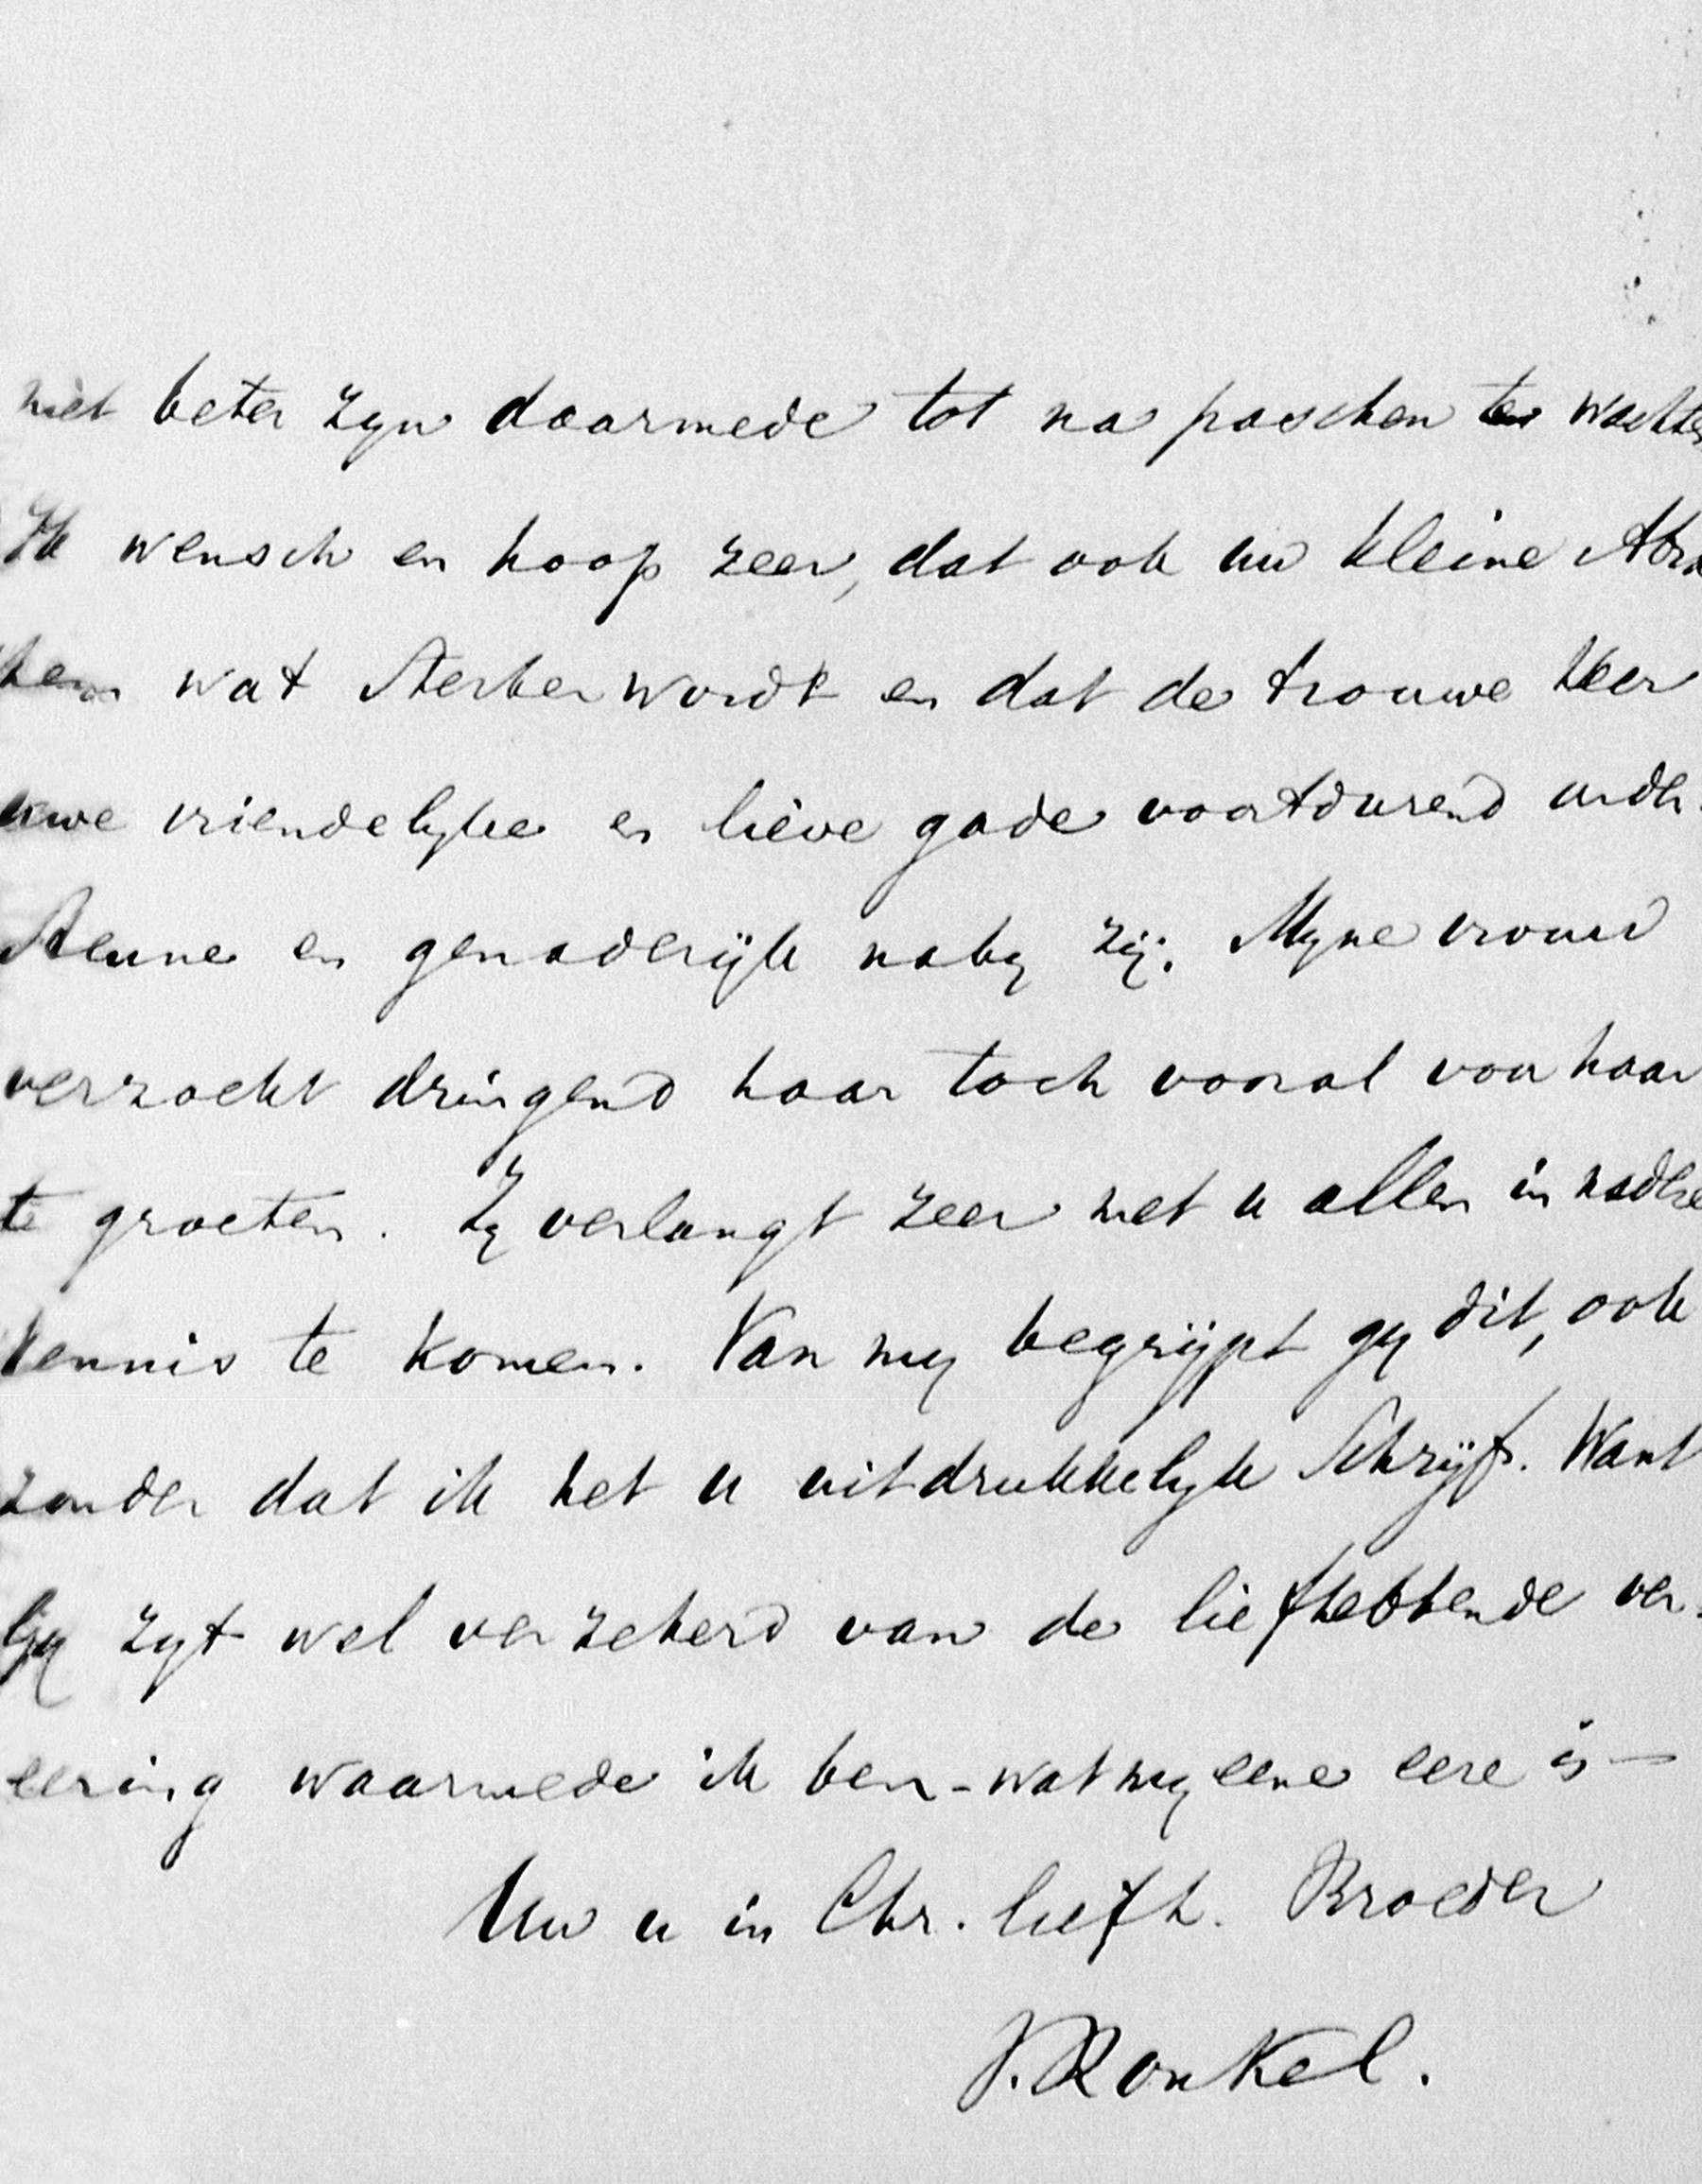 niet beter zyn daarmede tot na paschen te wachten
Ik wensch en hoop zeer, dat ook uw kleine Abra
ham wat sterker wordt en dat de trouwe Heer
uwe vriendelyke en lieve gade voortdurend onder-
steune en genaderijk naby zij. Myne vrouw
verzoekt dringend haar toch vooral van haar
te groeten. Zy verlangt zeer met u allen in nadere
kennis te komen. Van my begrijpt gy dit, ook
zonder dat ik het u uitdrukkelyk schrijf. Want
Gy zyt wel verzekerd van de liefhebbende ver-
eering waarmede ik ben - wat my eene eere is -
Uw u in Chr. liefh. Broeder
V. Ronkel.